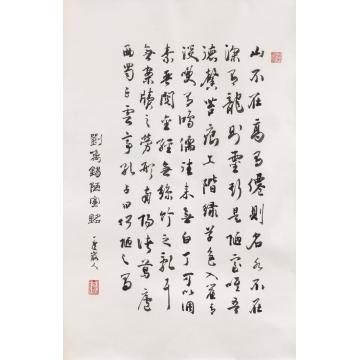 山不在高有僊則名水不在
深有龍則靈斯是陋室唯吾
德馨苔痕上階綠草色入簾青
談笑有鴻儒往來無白丁可以調
素琴閱金經無絲竹之亂耳
無案牘之勞形南陽諸葛廬
西蜀子雲亭孔子曰何陋之有
劉禹錫陋室銘